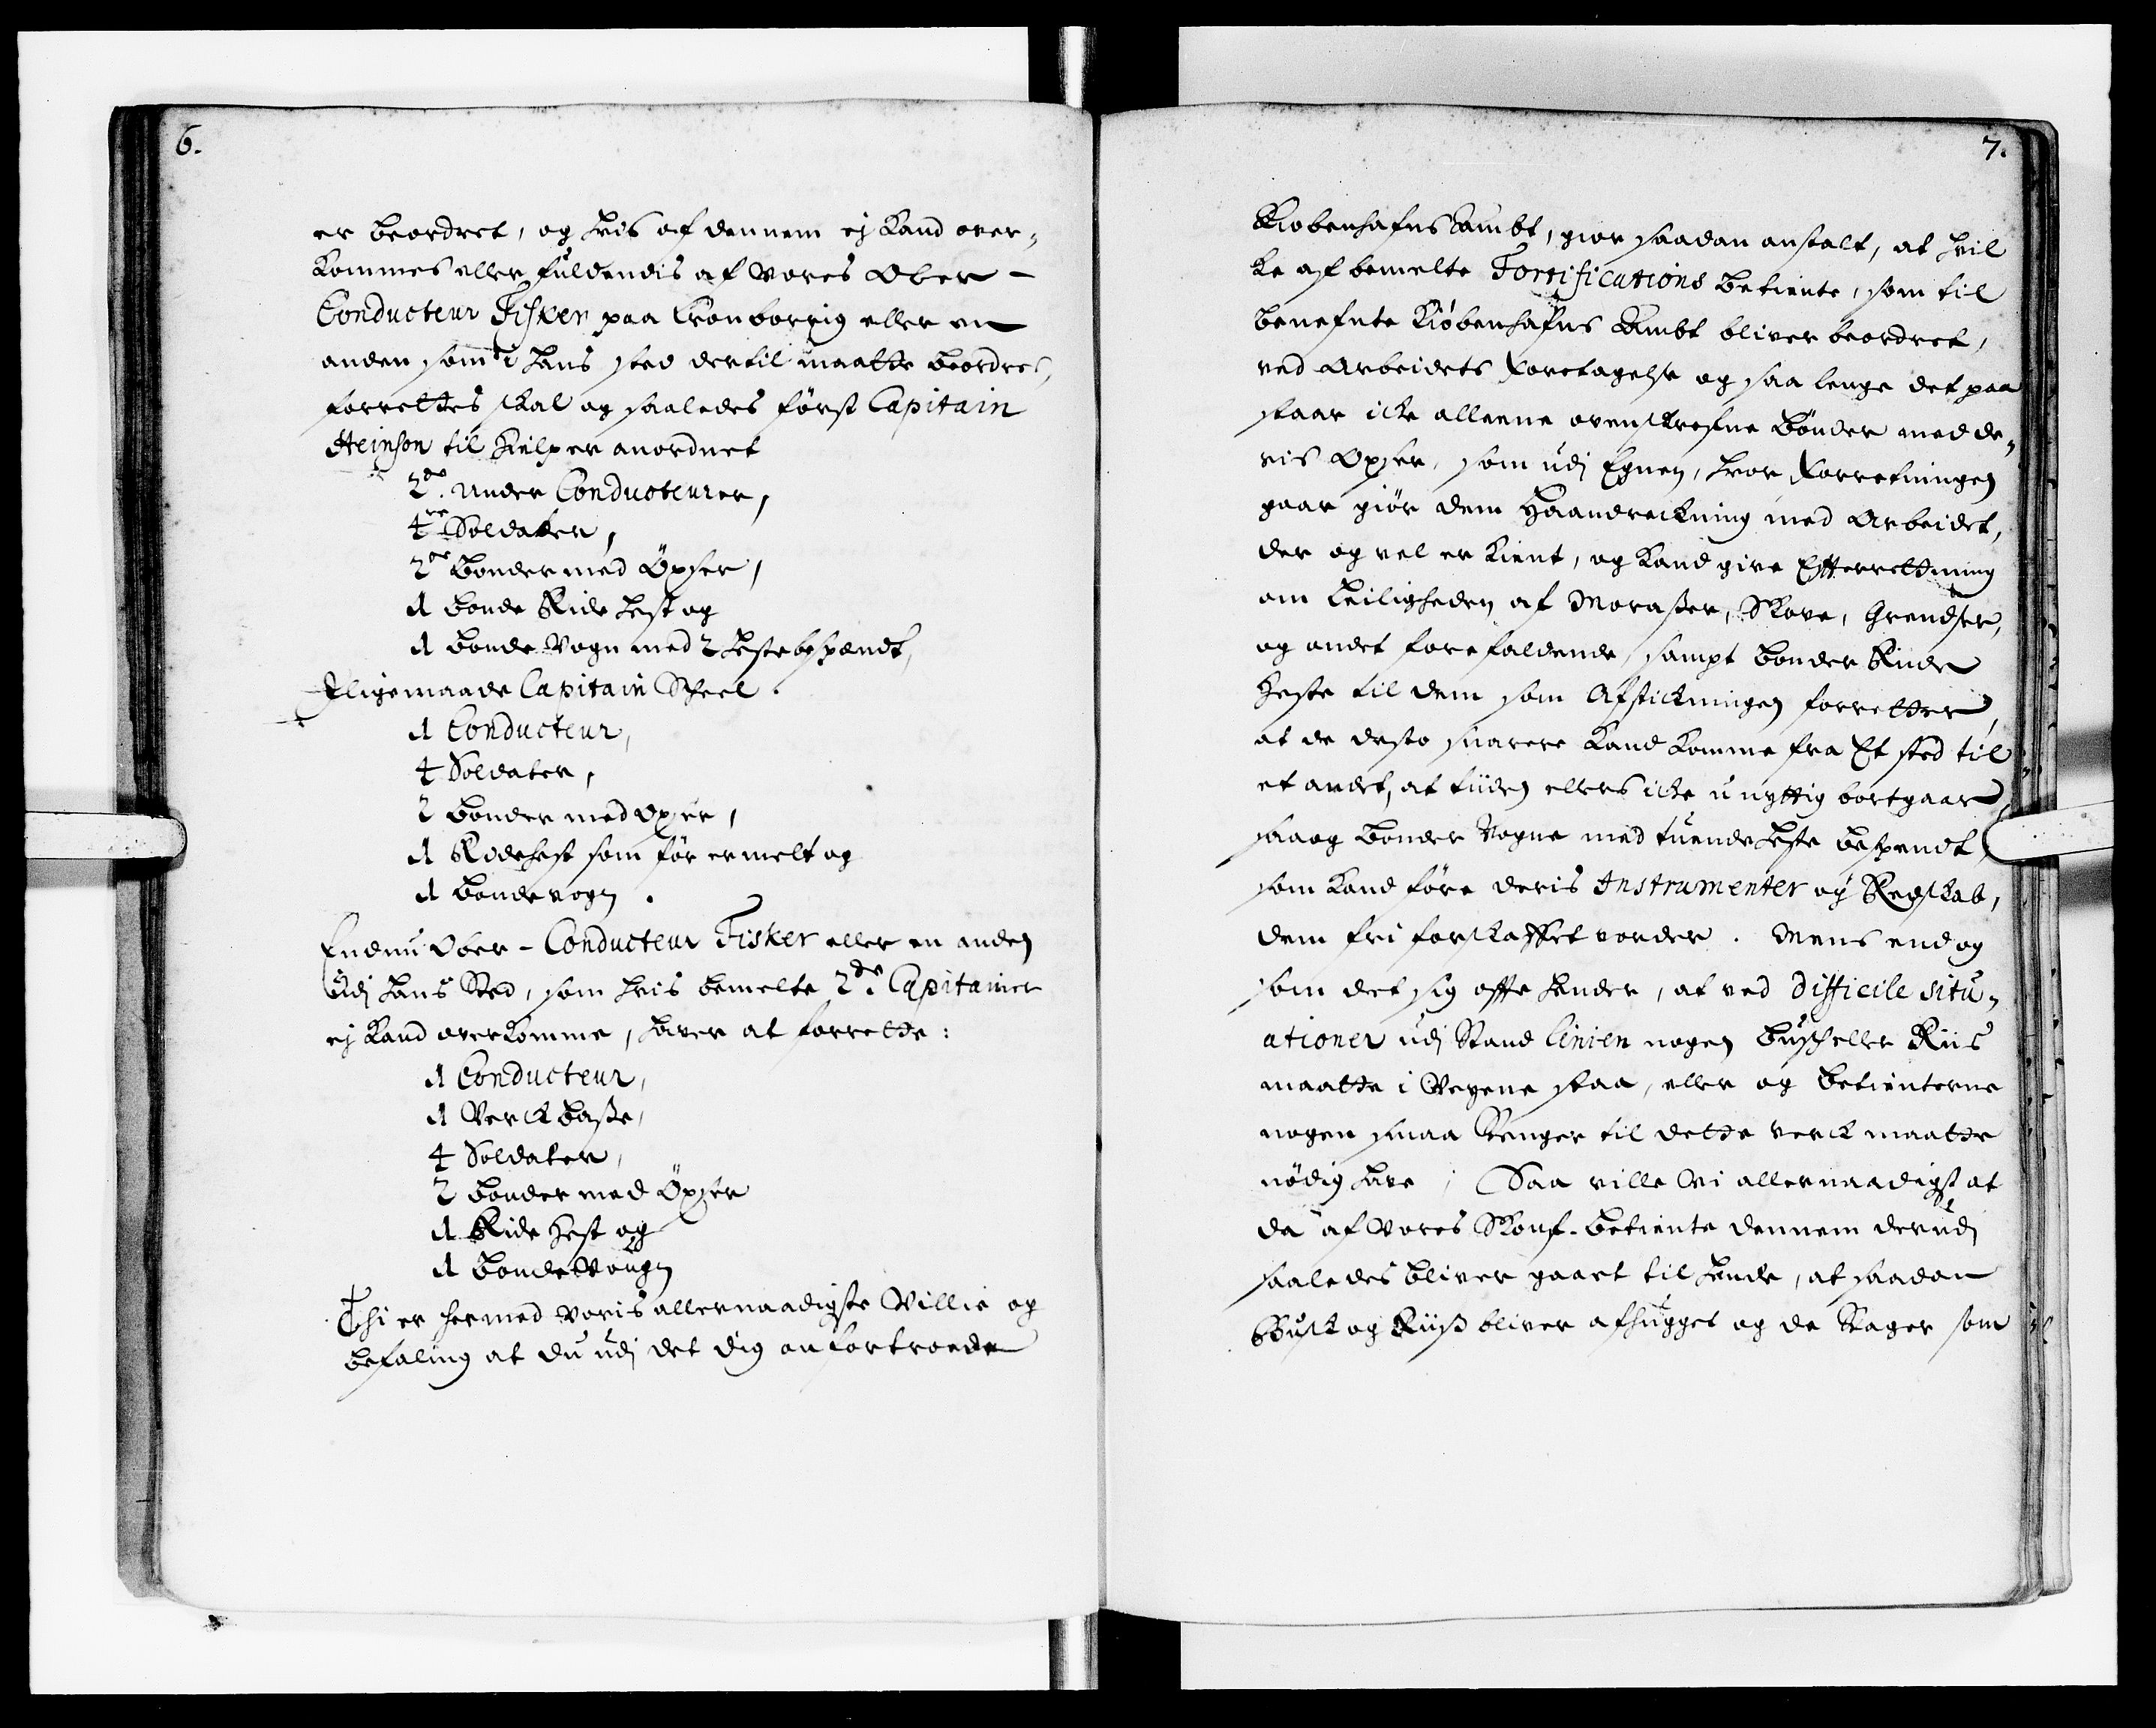 6.
er beordret, og hvis af dennem ej kand over-
kommes eller fuldendis af Vores Ober-
Conducteur Fisker paa Cronborrig eller en
anden som i hans sted dertil maatte beordres,
forrettes skal og saaledes først Capitain
Heinson til hielp er anordnet
2de. Under Conducteurer,
4re Soldater,
2de bønder med Öxser,
1 bonde Ride hest og
1 bonde Vogn med 2 heste bespændt,
Iligemaade Capitain Scheel.
1 Conducteur,
4 Soldater,
2 bønder med Oxser,
1 Ridehest som før ermelt og
1 bondevogn.
Endnu Ober-Conducteur Fisker eller en anden
Udj hans Sted, som hvis bemelte 2de. Capitainer
ej kand overkomme, haver at forrette:
1 Conducteur,
1 Verck basse,
4 Soldater,
2 bønder med Öxser
1 Ride hest og
1 bonde Vougn
Thi er hermed voris allernaadigste Villie og
befaling at du udj det dig anfortroede
7.
Kiøbenhafns Ambt, giør saadan anstalt, at hvil
ke af bemelte Fortifications betiente, som til
benefnte Kiöbenhafns Ambt bliver beordret,
ved Arbeidets foretagelse og saa lenge det paa
staar icke alleene ovenskrefne bönder med de-
ris Oxser, som udj Egnen, hvor forretningen
gaar giör dem Haandreckning med Arbeidet,
der og vel er kient, og kand give Efterrettning
om beiligheden af Morasser, Skove, Grendser,
og andet forefaldende, sampt bønder Ride
heste til dem som Afstickningen forretter,
at de desto snarere kand komme fra Et sted til
et andet, at tiiden ellers icke unyttig bortgaar,
saa og bønder Vogne med tuende heste bespendt,
som kand före deris Instrumenter og Redskab,
dem fri forskaffet vorder. Mens end og
som det sig offte hender, at ved difficile situ-
ationer udj Stand linien nogen busk eller Riis
maatte i Vejene staa, eller og betienterne
nogen smaa Stenger til dette verck maatte
nödig have; Saa ville Vi allernaadigst at
da af Vores Skouf-betiente dennem derudj
saaledes bliver gaaet til hende, at saadan
Busk og Riiss bliver afhugget og de Stager som